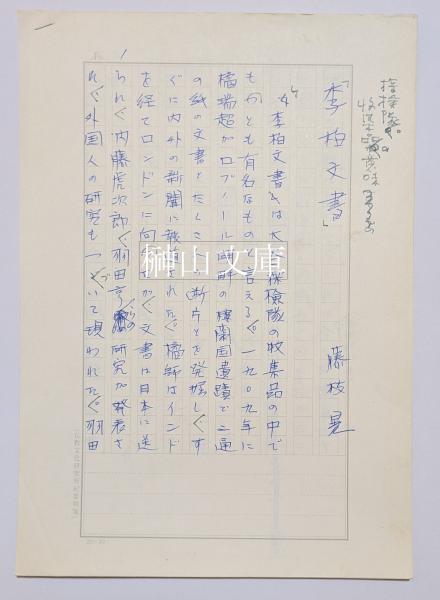 「李柏文書」
藤枝晃
「李柏文書」は大谷探検隊の收集品の中で
もっとも有名なものと言える。一九〇九年に
橘瑞超がロブノール湖畔の樓蘭国遺蹟で二通
の紙の文書とたくさんの断片とを発掘し、す
ぐに内外の新聞に報道された。橘師はインド
を経てロンドンに向ったが、文書は日本に送
られ、内藤虎次郎、羽田亨らの研究が発表さ
れ、外国人の研究も つづいて現われた。羽田
榊山文庫